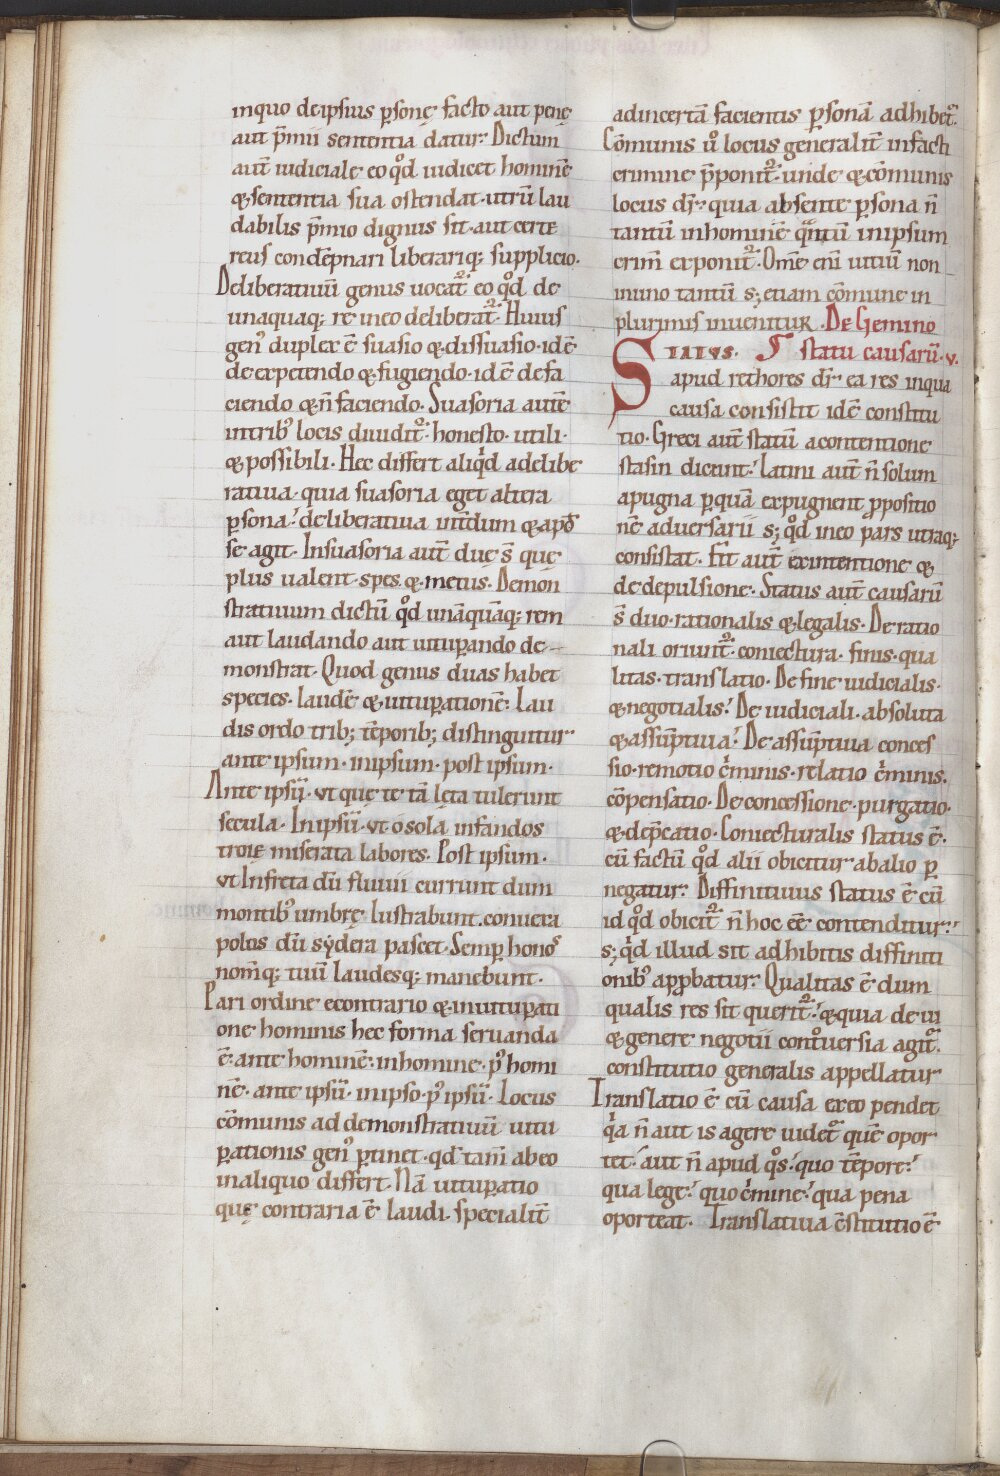 inquo de ipsius p̱sonę facto aut penę
aut p̄mii sententia datur. Dictum
aut̄ iudiciale eo qđ iudicet hominē
& sententia sua ostendat. utrū lau
dabilis p̄mio dignus sit. aut certe
reus condēpnari liberariq; supplicio.
Deliberatiuū genus uocat᷑. eo qđ de
unaquaq; re ineo deliberat᷑. Huius
genꝰ duplex ē suasio & dissuasio. idē
de expetendo & fugiendo. idē de fa
ciendo & ñ faciendo. Suasoria autē
intribꝰ locis diuidit᷑. honesto. utili.
& possibili. Hec differt aliqͥd adelibe
ratiua. quia suasoria eget altera
p̱sona. deliberatiua int̄dum & apđ
se agit. Insuasoria aut̄ duę s̄ quę
plus ualent. spes & metus. Demon
stratiuum dictū qđ unāquāq; rem
aut laudando aut uitup̱ando de
monstrat. Quod genus duas habet
species. laudē & uitup̱ationē. Lau
dis ordo trib; tēporib; distinguitur
ante ipsum. inipsum. post ipsum.
Ante ipsū. vt quę te tā lęta tulerunt
secula. Inipsū. vt o sola infandos
troię miserata labores. Post ipsum.
vt Infreta dū fluuii current dum
montibꝰ umbrę. lustrabunt. conuexa
polus dū sydera pascet. Semp̱ honoˢ
nom̄q; tuū laudesq; manebunt.
Pari ordine econtrario & inuitup̱ati
one hominis hec forma seruanda
ē. ante hominē. inhomine. pꝰ homi
nē. ante ipsū. inipso. pꝰ ipsū. Locus
cōmunis ad demonstratiuū uitu
p̱ationis genꝰ p̱tinet. qd̄ tam̄ abeo
inaliquo differt. Nā uitup̱atio
quę contraria ē laudi. specialit̄
adincertā facientis p̱sonā adhibet᷑.
Cōmunis ů locus generalit̄ infacti
crimine p̄ponit᷑. unde & cōmunis
locus dr̄. quia absente p̱sona ñ
tantū inhominē qͣntū inipsum
crim̄ exponit᷑. Om̄e eni uitiū non
inuno tantū s; etiam cōmune in
plurimis inuenitur. De Gemino
STATVS. statu causarū. v.
apud rethores dr̄ ea res inqua
causa consistit idē constitu
tio. Greci aut̄ statū a contentione
stasin dicunt. latini aut̄ ñ solum
apugna p̱quā expugnent p̱positio
nē aduersarii s; qđ ineo pars utraq;
consistat. Fit aut̄ exintentione &
de depulsione. Status aut̄ causarū
s̄ duo. rationalis & legalis. De ratio
nali oriunt᷑. coniectura. finis. qua
litas. translatio. De fine iudicialis.
& negotialis. De iudiciali. absoluta
& assūptiua. De assūptiua conces
sio. remotio cͥminis. relatio cͥminis.
cōpensatio. De concessione. purgatio.
& dep̄catio. Coniecturalis status ē.
cū factū qđ alii obicitur abalio p̱
negatur. Diffinitiuus status ē cū
id qđ obicit᷑ ñ hoc eē contenditur.
s; qͥd illud sit adhibitis diffiniti
onibꝰ app̱batur. Qualitas ē dum
qualis res sit querit᷑. & quia de ui
& genere negotii conͭuersia agit᷑.
constitutio generalis appellatur
Translatio ē cū causa exeo pendet
qͣ ñ aut is agere uidet᷑ quē opor
tet. aut ñ apud qͦs. quo tēpore.
qua lege. quo cͥmine. qua pena
oporteat. Translatiua c̄stitutio ē